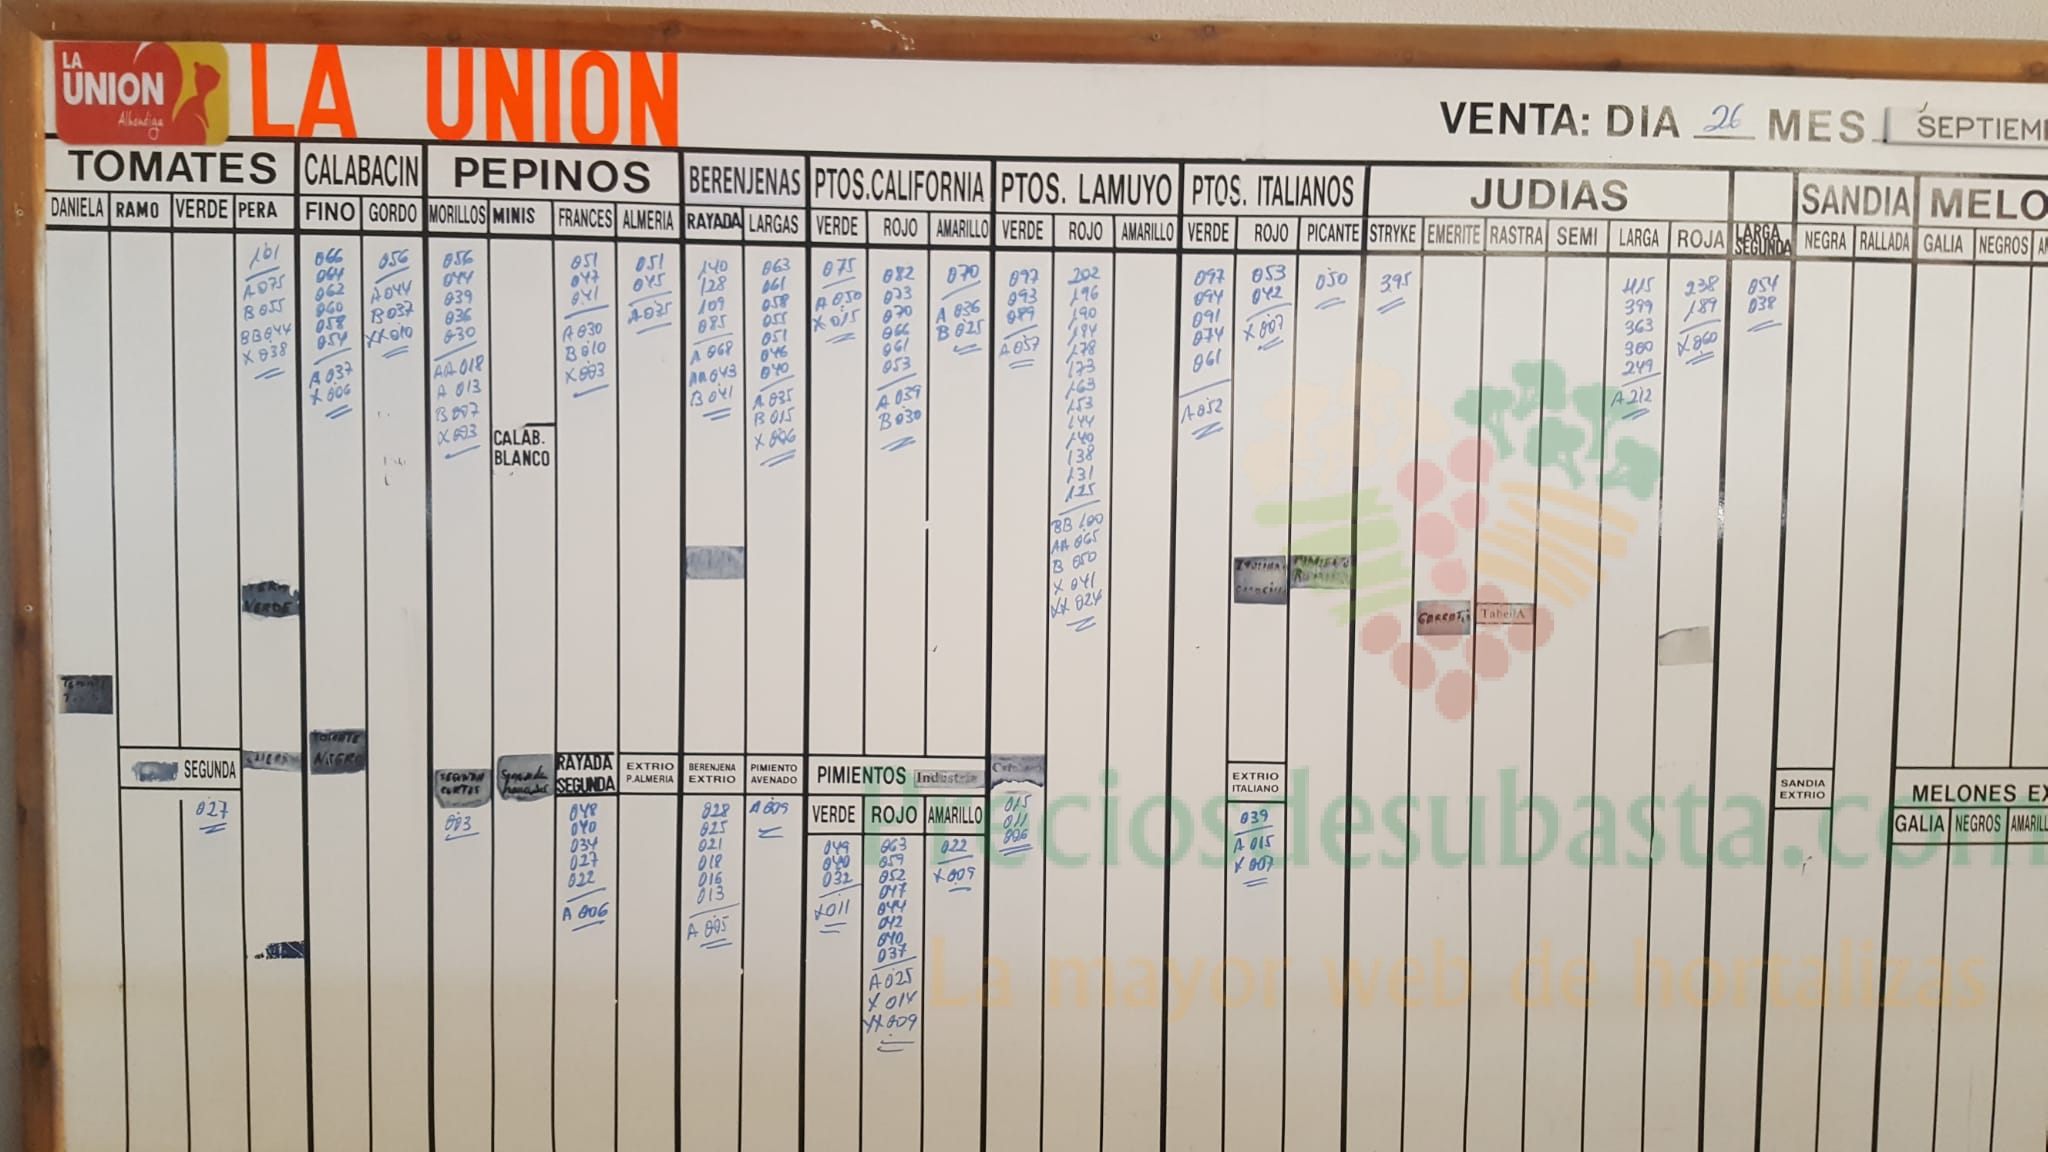 LA UNION Alhondiga
LA UNION
VENTA: DIA 26 MES SEPTIEM
TOMATES CALABACIN PEPINOS BERENJENAS PTOS.CALIFORNIA PTOS. LAMUYO PTOS. ITALIANOS JUDIAS SANDIA MELO
DANIELA RAMO VERDE PERA FINO GORDO MORILLOS MINIS FRANCES ALMERIA RAYADA LARGAS VERDE ROJO AMARILLO VERDE ROJO AMARILLO VERDE ROJO PICANTE STRYKE EMERITE RASTRA SEMI LARGA ROJA LARGA SEGUNDA NEGRA RALLADA GALIA NEGROS
101
A 075
B 055
BB 044
X 038
066
064
062
060
058
054
A 037
X 006
056
A 044
B 037
XX 010
056
044
039
036
030
AA 018
A 013
B 007
X 003
CALAB.
BLANCO
051
047
041
A 030
B 010
X 003
051
045
A 035
140
128
109
085
A 068
AA 043
B 041
063
061
058
055
051
046
040
A 035
B 015
X 006
075
A 050
X 015
082
073
070
066
061
053
A 039
B 030
070
A 036
B 025
097
093
089
A 057
202
196
190
184
178
173
163
153
144
140
138
131
125
BB 100
AA 065
B 050
X 041
XX 024
097
094
091
074
061
A 052
053
042
X 007
050
395
415
399
363
300
249
A 212
238
189
X 060
054
038
VERDE
TabellA
SEGUNDA
027
TOMATE
NEGRO
SEGUNDA
CORTOS
003
Segunda
RAYADA
SEGUNDA
048
040
034
027
022
A 006
EXTRIO
P.ALMERIA
BERENJENA
EXTRIO
028
025
021
018
016
013
A 005
PIMIENTO
AVENADO
A 009
PIMIENTOS Industria
VERDE ROJO AMARILLO
049
040
032
X 011
063
059
052
047
044
042
040
037
A 025
X 014
XX 009
022
X 009
015
011
006
EXTRIO
ITALIANO
039
A 015
X 007
SANDIA
EXTRIO
MELONES EX
GALIA NEGROS AMARILL
Preciosdesubasta.com
La mayor web de hortalizas